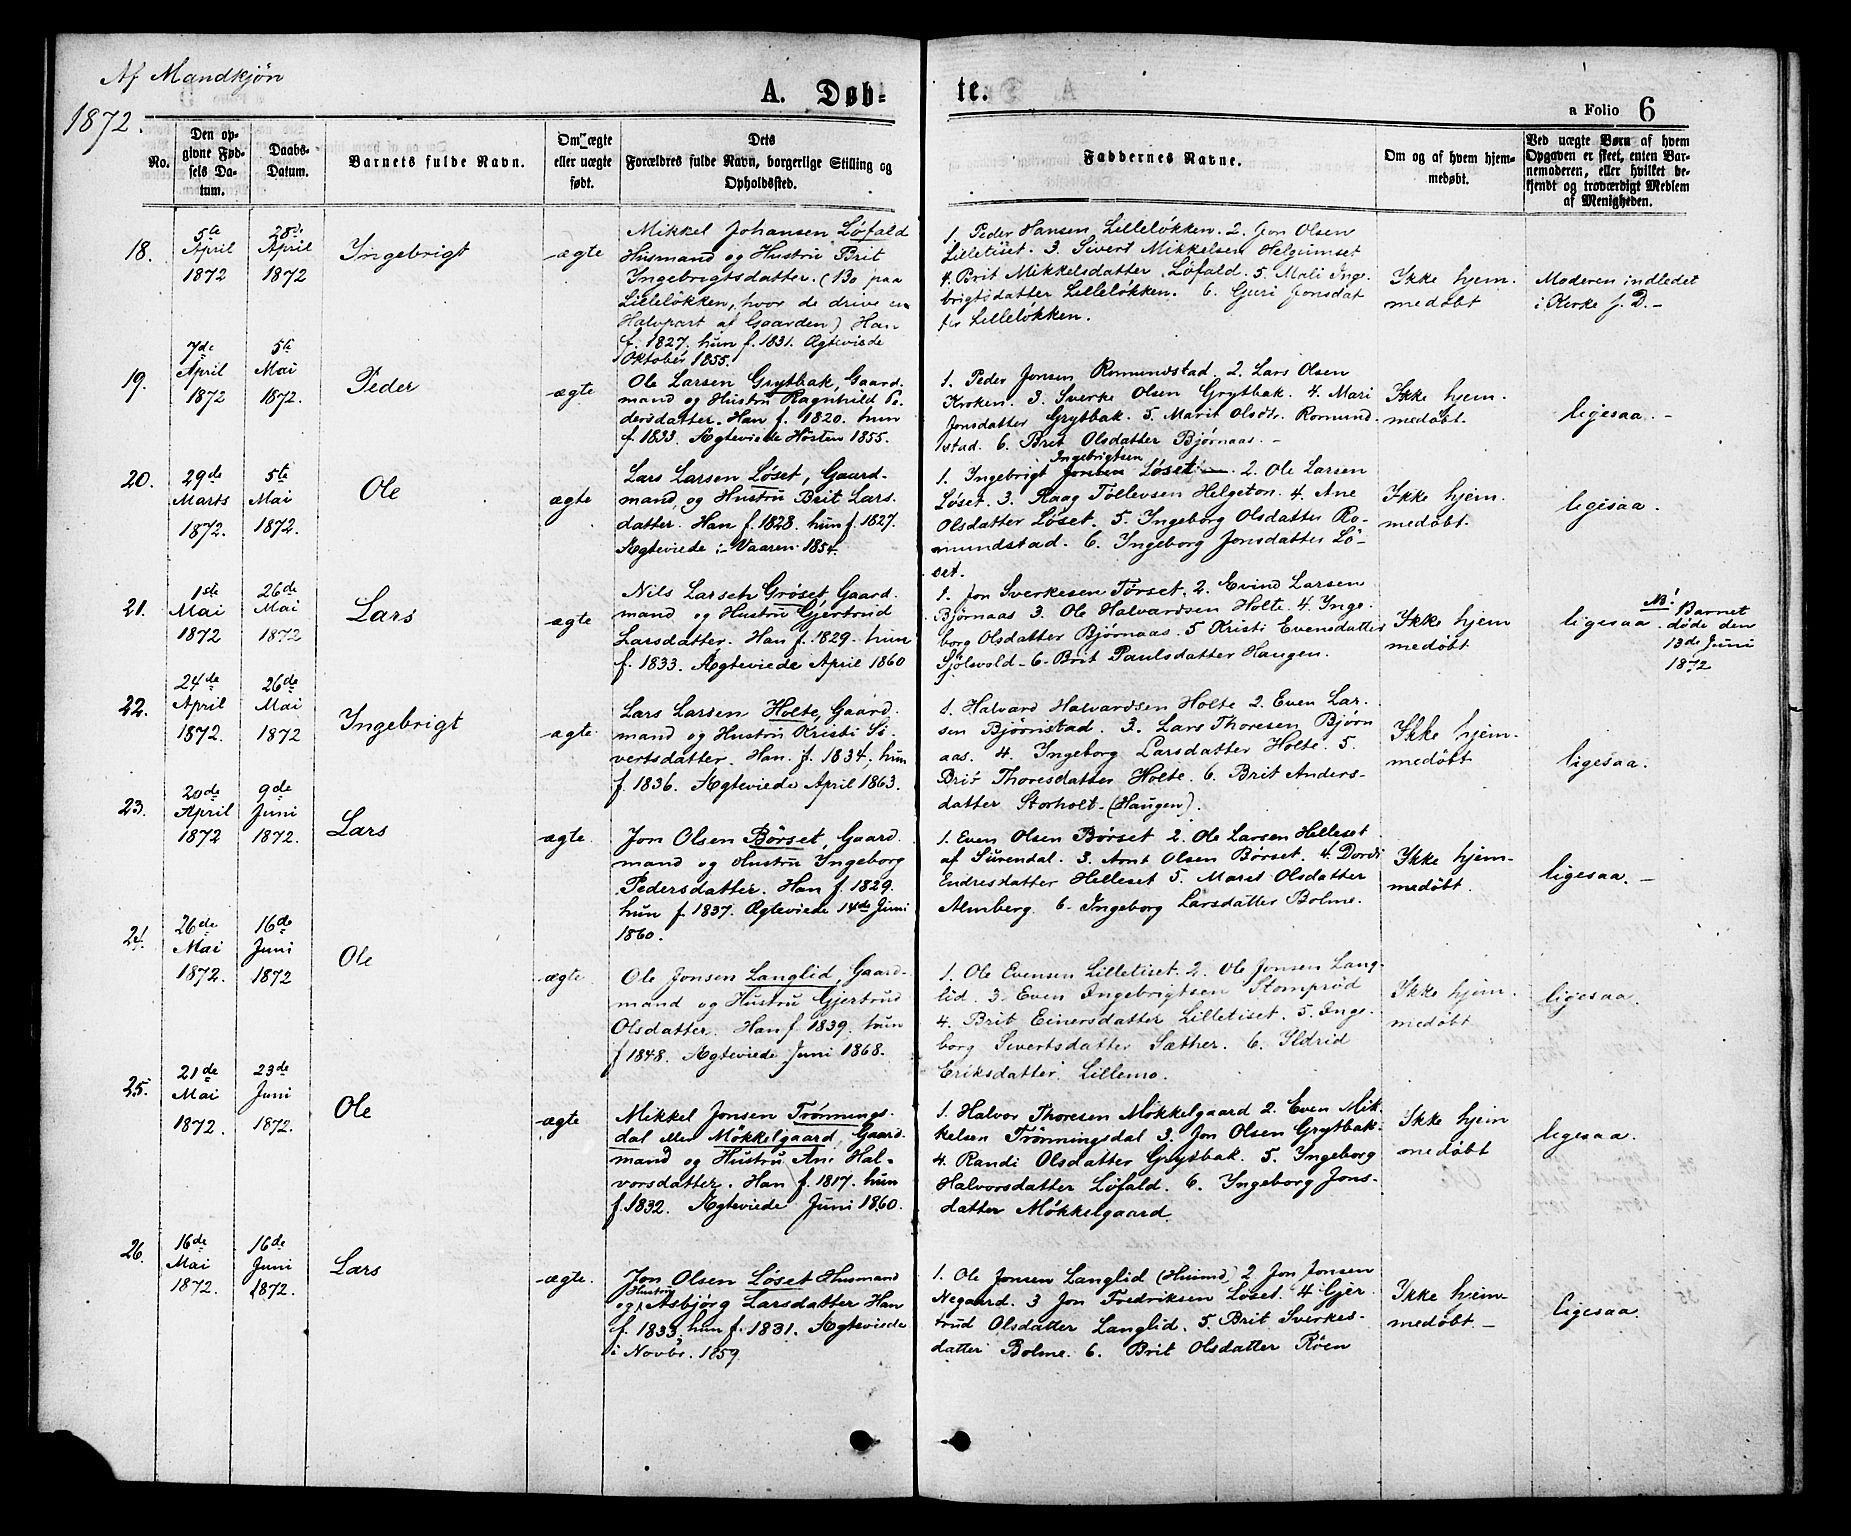 Af Mandkjøn
1872.
A. Døb-
te.
a Folio 6
No.
Den op-
givne Fød-
sels Da-
tum.
Daabs-
Datum.
Barnets fulde Navn.
Om ægte
eller uægte
født.
Dets
Forældres fulde Navn, borgerlige Stilling og
Opholdssted.
Faddernes Navne.
Om og af hvem hjem-
medøbt.
Ved uægte Børn af hvem
Opgaven er skeet, enten Bar-
nemoderen, eller hvilket be-
kjendt og troværdigt Medlem
af Menigheden.
18.
5te
April
1872
28de
April
1872
Ingebrigt
ægte
Mikkel Johansen Løfald
Husmand og Hustru Brit
Ingebrigtsdatter. (Bo paa
Lilleløkken, hvor de drive en
Halvpart af Gaarden) Han
f. 1827. hun f. 1831. Ægteviede
Oktober 1855.
1. Peder Hansen Lilleløkken. 2. Jon Olsen
Lilletiset. 3. Sivert Mikkelsen Helgumset
4. Brit Mikkelsdatter Løfald. 5. Mali Inge-
brigtsdatter Lilleløkken. 6. Guri Jonsdat
ter Lilleløkken.
Ikke hjem-
medøbt
Moderen indledet
i Kirke s. D. -
19.
7de
April
1872
5te
Mai
1872.
Peder
ægte
Ole Larsen Grytbak, Gaard-
mand og Hustru Ragnhild Pe-
dersdatter. Han f. 1820. hun
f. 1833. Ægteviede Høsten 1855.
1. Peder Jonsen Romundstad. 2. Lars Olsen
Kroken. 3. Sverke Olsen Grytbak. 4. Mari
Jonsdatter Grytbak. 5. Marit Olsdtr. Romund-
stad. 6. Brit Olsdatter Bjørnaas. -
Ikke hjem-
medøbt.
ligesaa. -
20.
29de
Marts
1872.
5te
Mai
1872.
Ole
ægte
Lars Larsen Løset, Gaard-
mand, og Hustru Brit Lars-
datter. Han f. 1828. hun f. 1827.
Ægteviede :- Vaaren 1854.
Ingebrigtsen
1. Ingebrigt Jonsen Løset. — 2. Ole Larsen
Løset. 3. Raag Tollevsen Helgeton. 4. Ane
Olsdatter Løset. 5. Ingeborg Olsdatter Ro-
mundstad. 6. Ingeborg Jonsdatter Lø-
set.
Ikke hjem-
medøbt.
ligesaa.
21.
1ste
Mai
1872
26de
Mai
1872
Lars
ægte
Nils Larsen Grøset Gaard-
mand og Hustru Gjertrud
Larsdatter. Han f. 1829. hun
f. 1833. Ægteviede April 1860
1. Jon Sverkesen Tørset. 2. Evind Larsen
Bjørnaas 3. Ole Halvardsen Holte. 4. Inge-
borg Olsdatter Bjørnaas. 5 Kristi Evensdatter
Sjølsvold - 6. Brit Paulsdatter Haugen.
Ikke hjem
medøbt
ligesaa
NB! Barnet
døde den
13de Juni
1872
22.
24de
April
1872.
26de
Mai
1872
Ingebrigt
ægte
Lars Larsen Holte, Gaard-
mand og Hustru Kristi Si-
vertsdatter. Han. f. 1834. hun
f. 1836. Ægteviede April 1863.
1. Halvard Halvardsen Holte 2. Even Lar-
sen Bjørnstad. 3. Lars Thoresen Bjørn
aas. 4. Ingeborg Larsdatter Holte. 5.
Brit Thoresdatter Holte. 6. Brit Anders-
datter Storholt - (Haugen).
Ikke hjem-
medøbt
ligesaa.
23.
20de
April
1872
9de
Juni
1872.
Lars
ægte
Jon Olsen Børset, Gaard-
mand og Hustru Ingeborg
Pedersdatter. Han f. 1829.
hun f. 1837. Ægteviede 14de Juni
1860.
1. Even Olsen Børset 2. Ole Larsen Helleset
af Surendal. 3. Arnt Olsen Børset. 4. Dordi
Endresdatter Helleset 5. Maret Olsdatter
Almberg. 6. Ingeborg Larsdatter Bolme.
Ikke hjem-
medøbt.
ligesaa. -
24.
26de
Mai
1872.
16de
Juni
1872
Ole
ægte
Ole Jonsen Langlid, Gaard-
mand og Hustru Gjertrud
Olsdatter. Han f. 1839. hun
f 1848. Ægteviede Juni 1868.
1. Ole Evensen Lilletiset. 2. Ole Jonsen Lang-
lid. 3. Even Ingebrigtsen Stomprød
4. Brit Einersdatter Lilletiset. 5. Inge-
borg Sivertsdatter Sæther. 6. Ildrid
Eriksdatter Lillemo.
Ikke hjem-
medøbt
ligesaa.
25.
21de
Mai
1872.
23de
Juni
1872.
Ole
ægte
Mikkel Jonsen Trønnings-
dal eller Møkkelgaard, Gaard-
mand og Hustru Ane Hal-
vorsdatter. Han f. 1817. hun
f. 1832. Ægteviede Juni 1860.
1. Halvor Thoresen Møkkelgaard 2. Even Mik-
kelsen Trønningsdal 3. Jon Olsen Grytbak
4. Randi Olsdatter Grytbak. 5. Ingeborg
Halvorsdatter Løfald. 6. Ingeborg Jons-
datter Møkkelgaard.
Ikke hjem
medøbt
ligesaa.
26.
16de
Mai
1872.
16de
Juni
1872.
Lars
ægte.
Jon Olsen Løset Husmand
Hustru
og Asbjørg Larsdatter Han
f. 1833, hun f. 1831. Ægteviede
i Novbr. 1859.
1. Ole Jonsen Langlid 2 Jon Jonsen
Negaard. 3 Jon Fredriksen Løset. 4 Gjer-
trud Olsdatter Langlid. 5. Brit Sverkes-
datter Bolme. 6. Brit Olsdatter Røen
Ikke hjem-
medøbt. -
ligesaa.